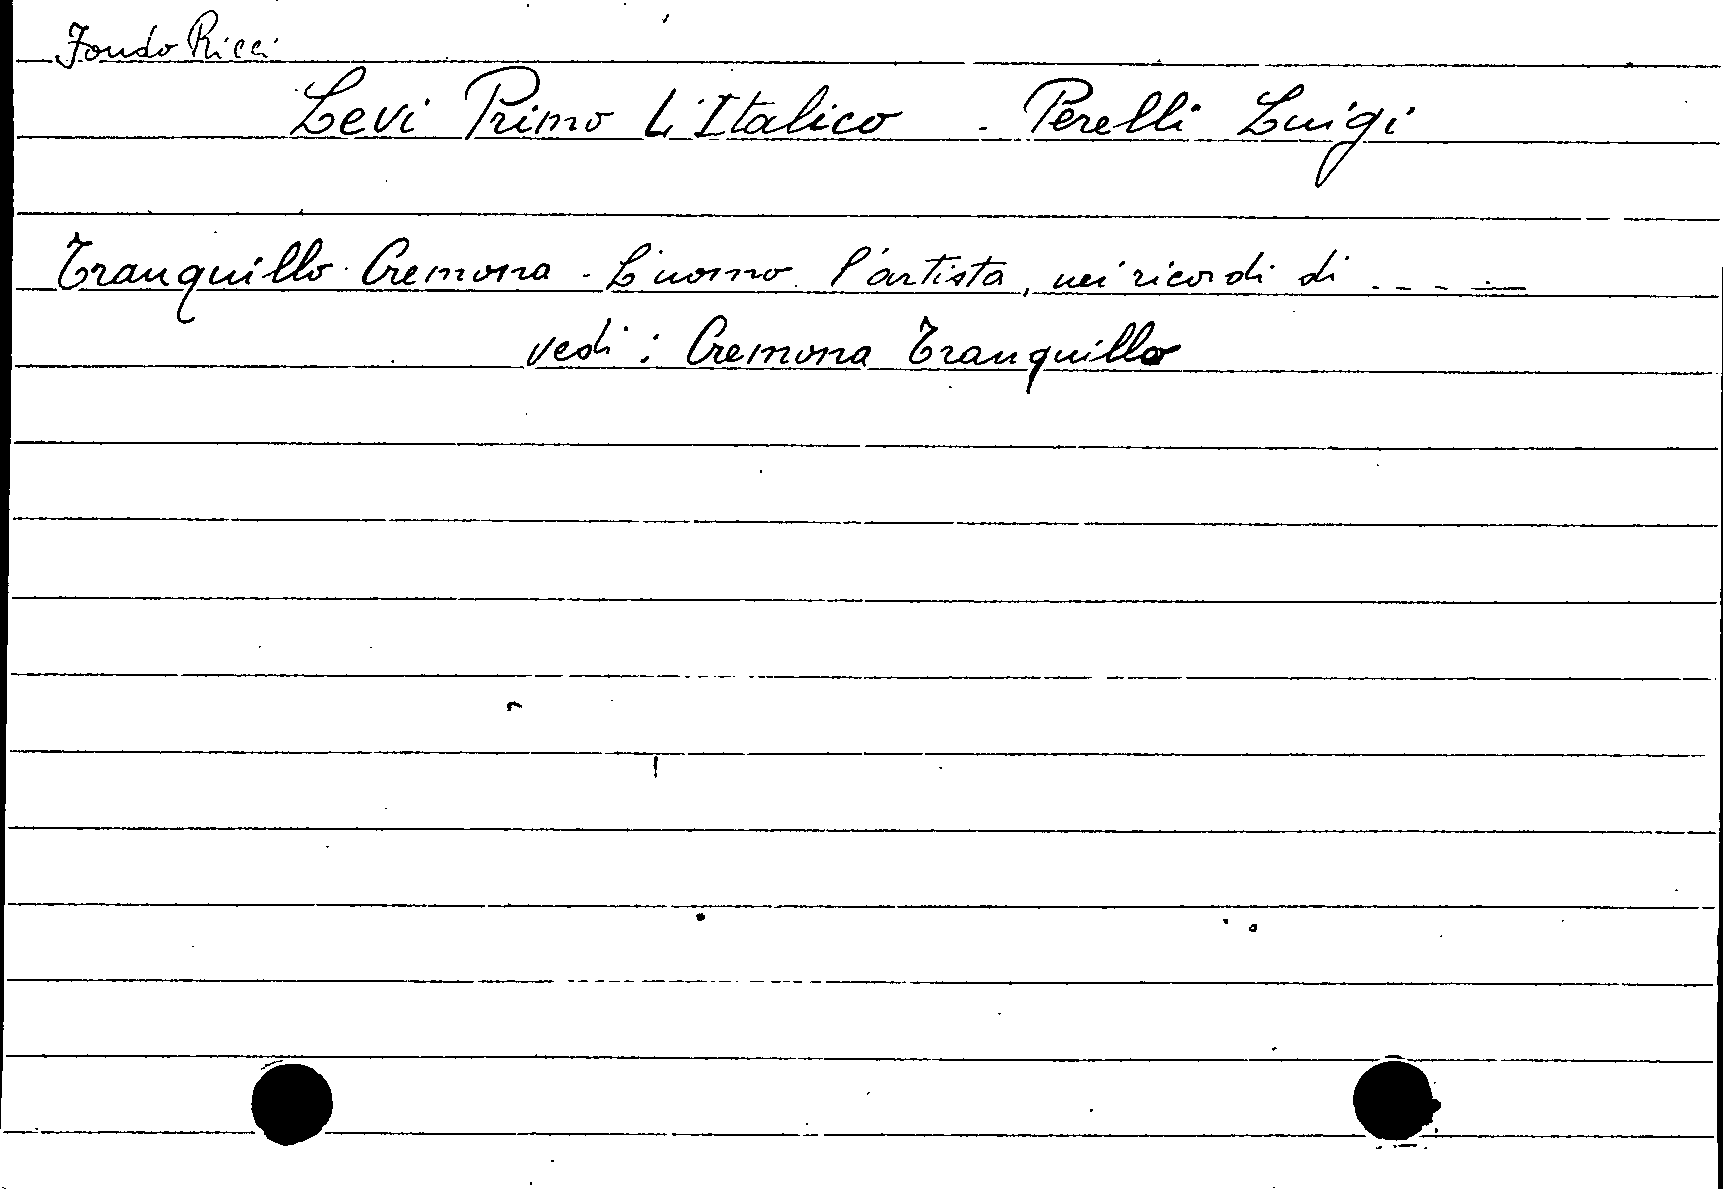 Fondo Ricci
Levi Primo L'Italico - Perelli Luigi
Tranquillo Cremona - L'uomo l'artista, nei ricordi di - - - - -
vedi : Cremona Tranquillo